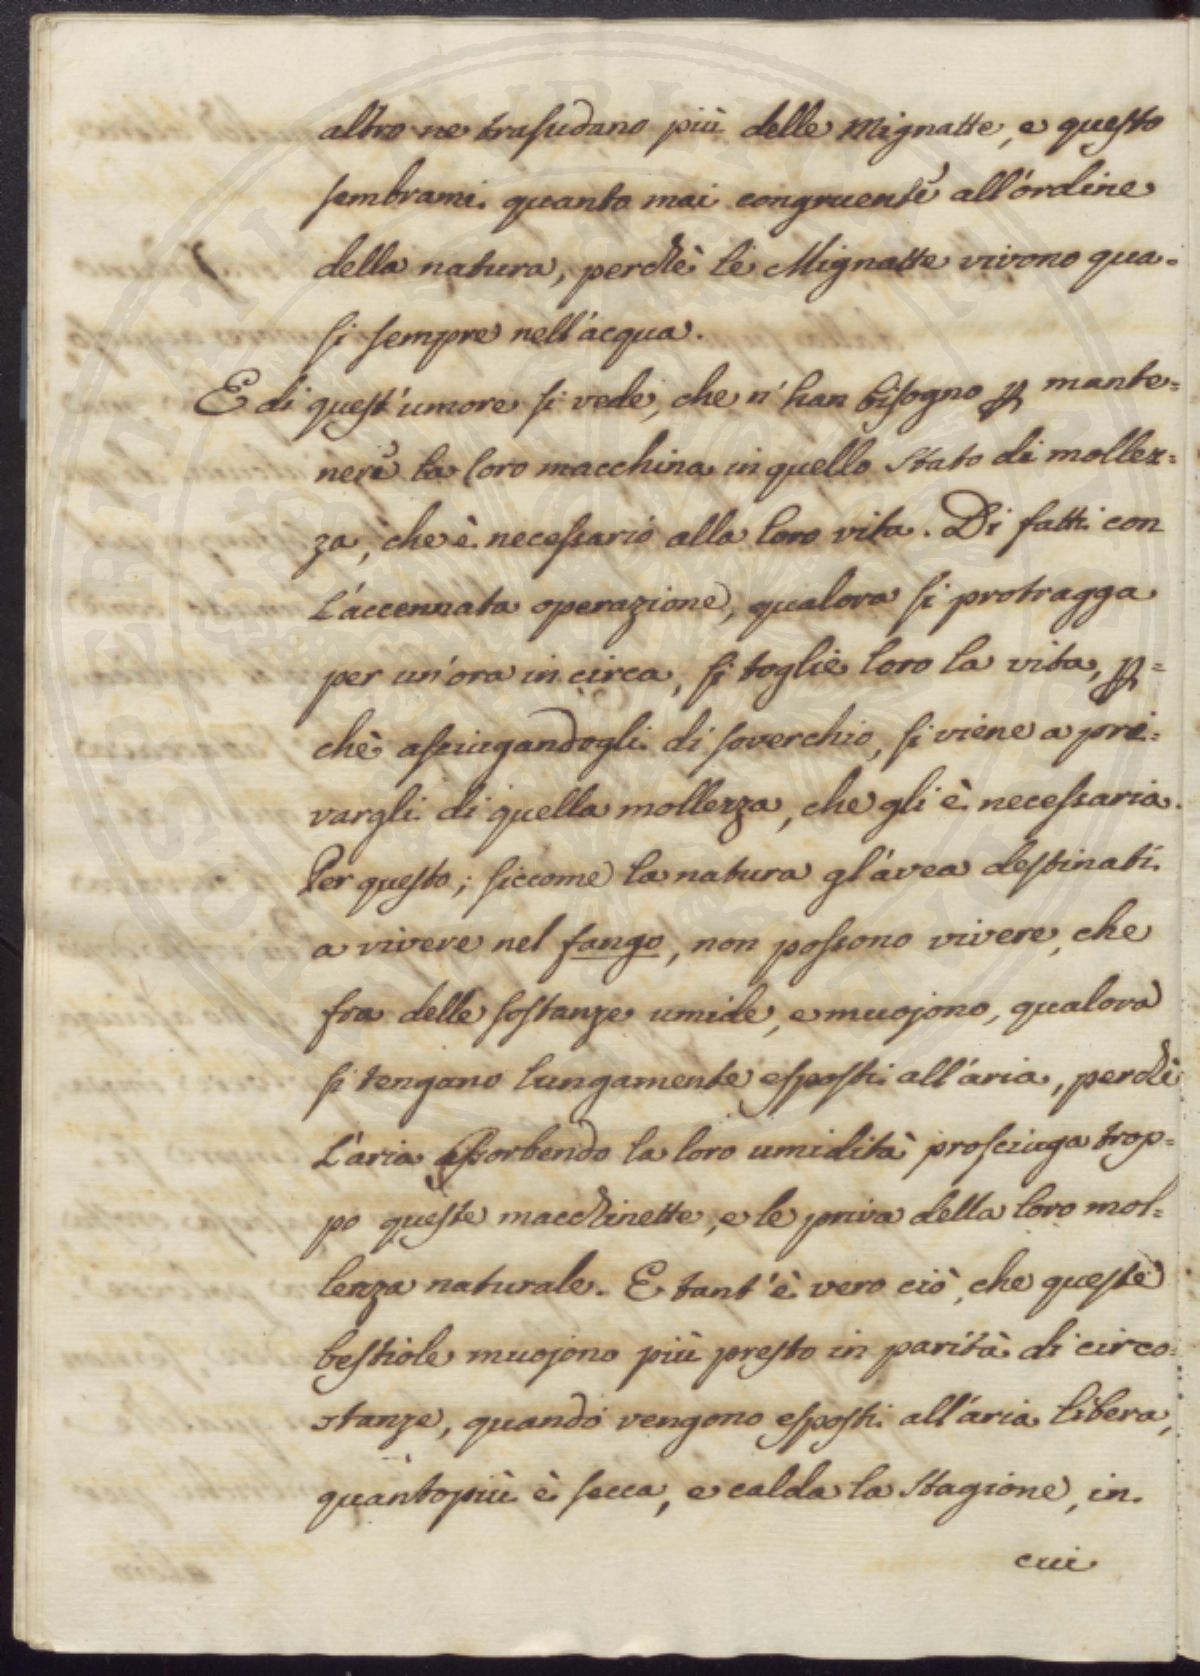 altro ne trasudano più delle Mignatte, e questo
sembrami quanto mai congruente all'ordine
della natura, perchè le Mignatte vivono qua=
si sempre nell'acqua.
E di quest'umore si vede, che n'han bisogno ꝑ mante=
nere la loro macchina in quello stato di mollez=
za, che è necessario alla loro vita. Di fatti con
l'accennata operazione, qualora si protragga
per un'ora in circa, si toglie loro la vita, ꝑ=
chè asciugandogli di soverchio, si viene a pri=
vargli di quella mollezza, che gli è necessaria.
Per questo; siccome la natura gl'avea destinati
a vivere nel fango, non possono vivere, che
fra delle sostanze umide, e muojono, qualora
si tengano lungamente esposti all'aria, perchè
l'aria assorbendo la loro umidità prosciuga trop=
po queste macchinette, e le priva della loro mol=
lezza naturale. E tant'è vero ciò, che queste
bestiole muojono più presto in parità di circo=
stanze, quando vengono esposti all'aria libera,
quantopiù è secca, e calda la stagione, in
cui